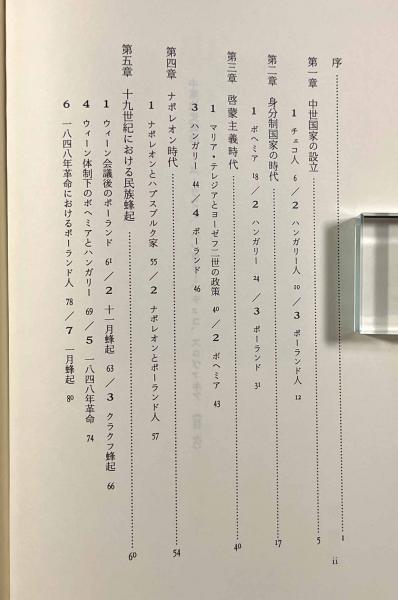 序……1
第一章　中世国家の設立……5
1 チェコ人 6／2 ハンガリー人 10／3 ポーランド人 12
第二章　身分制国家の時代……17
1 ボヘミア 18／2 ハンガリー 24／3 ポーランド 31
第三章　啓蒙主義時代……40
1 マリア・テレジアとヨーゼフ二世の政策 40／2 ボヘミア 43
3 ハンガリー 44／4 ポーランド 46
第四章　ナポレオン時代……54
1 ナポレオンとハプスブルク家 55／2 ナポレオンとポーランド人 57
第五章　十九世紀における民族蜂起……60
1 ウィーン会議後のポーランド 61／2 十一月蜂起 63／3 クラクフ蜂起 66
4 ウィーン体制下のボヘミアとハンガリー 69／5 一八四八年革命 74
6 一八四八年革命におけるポーランド人 78／7 一月蜂起 80
ii